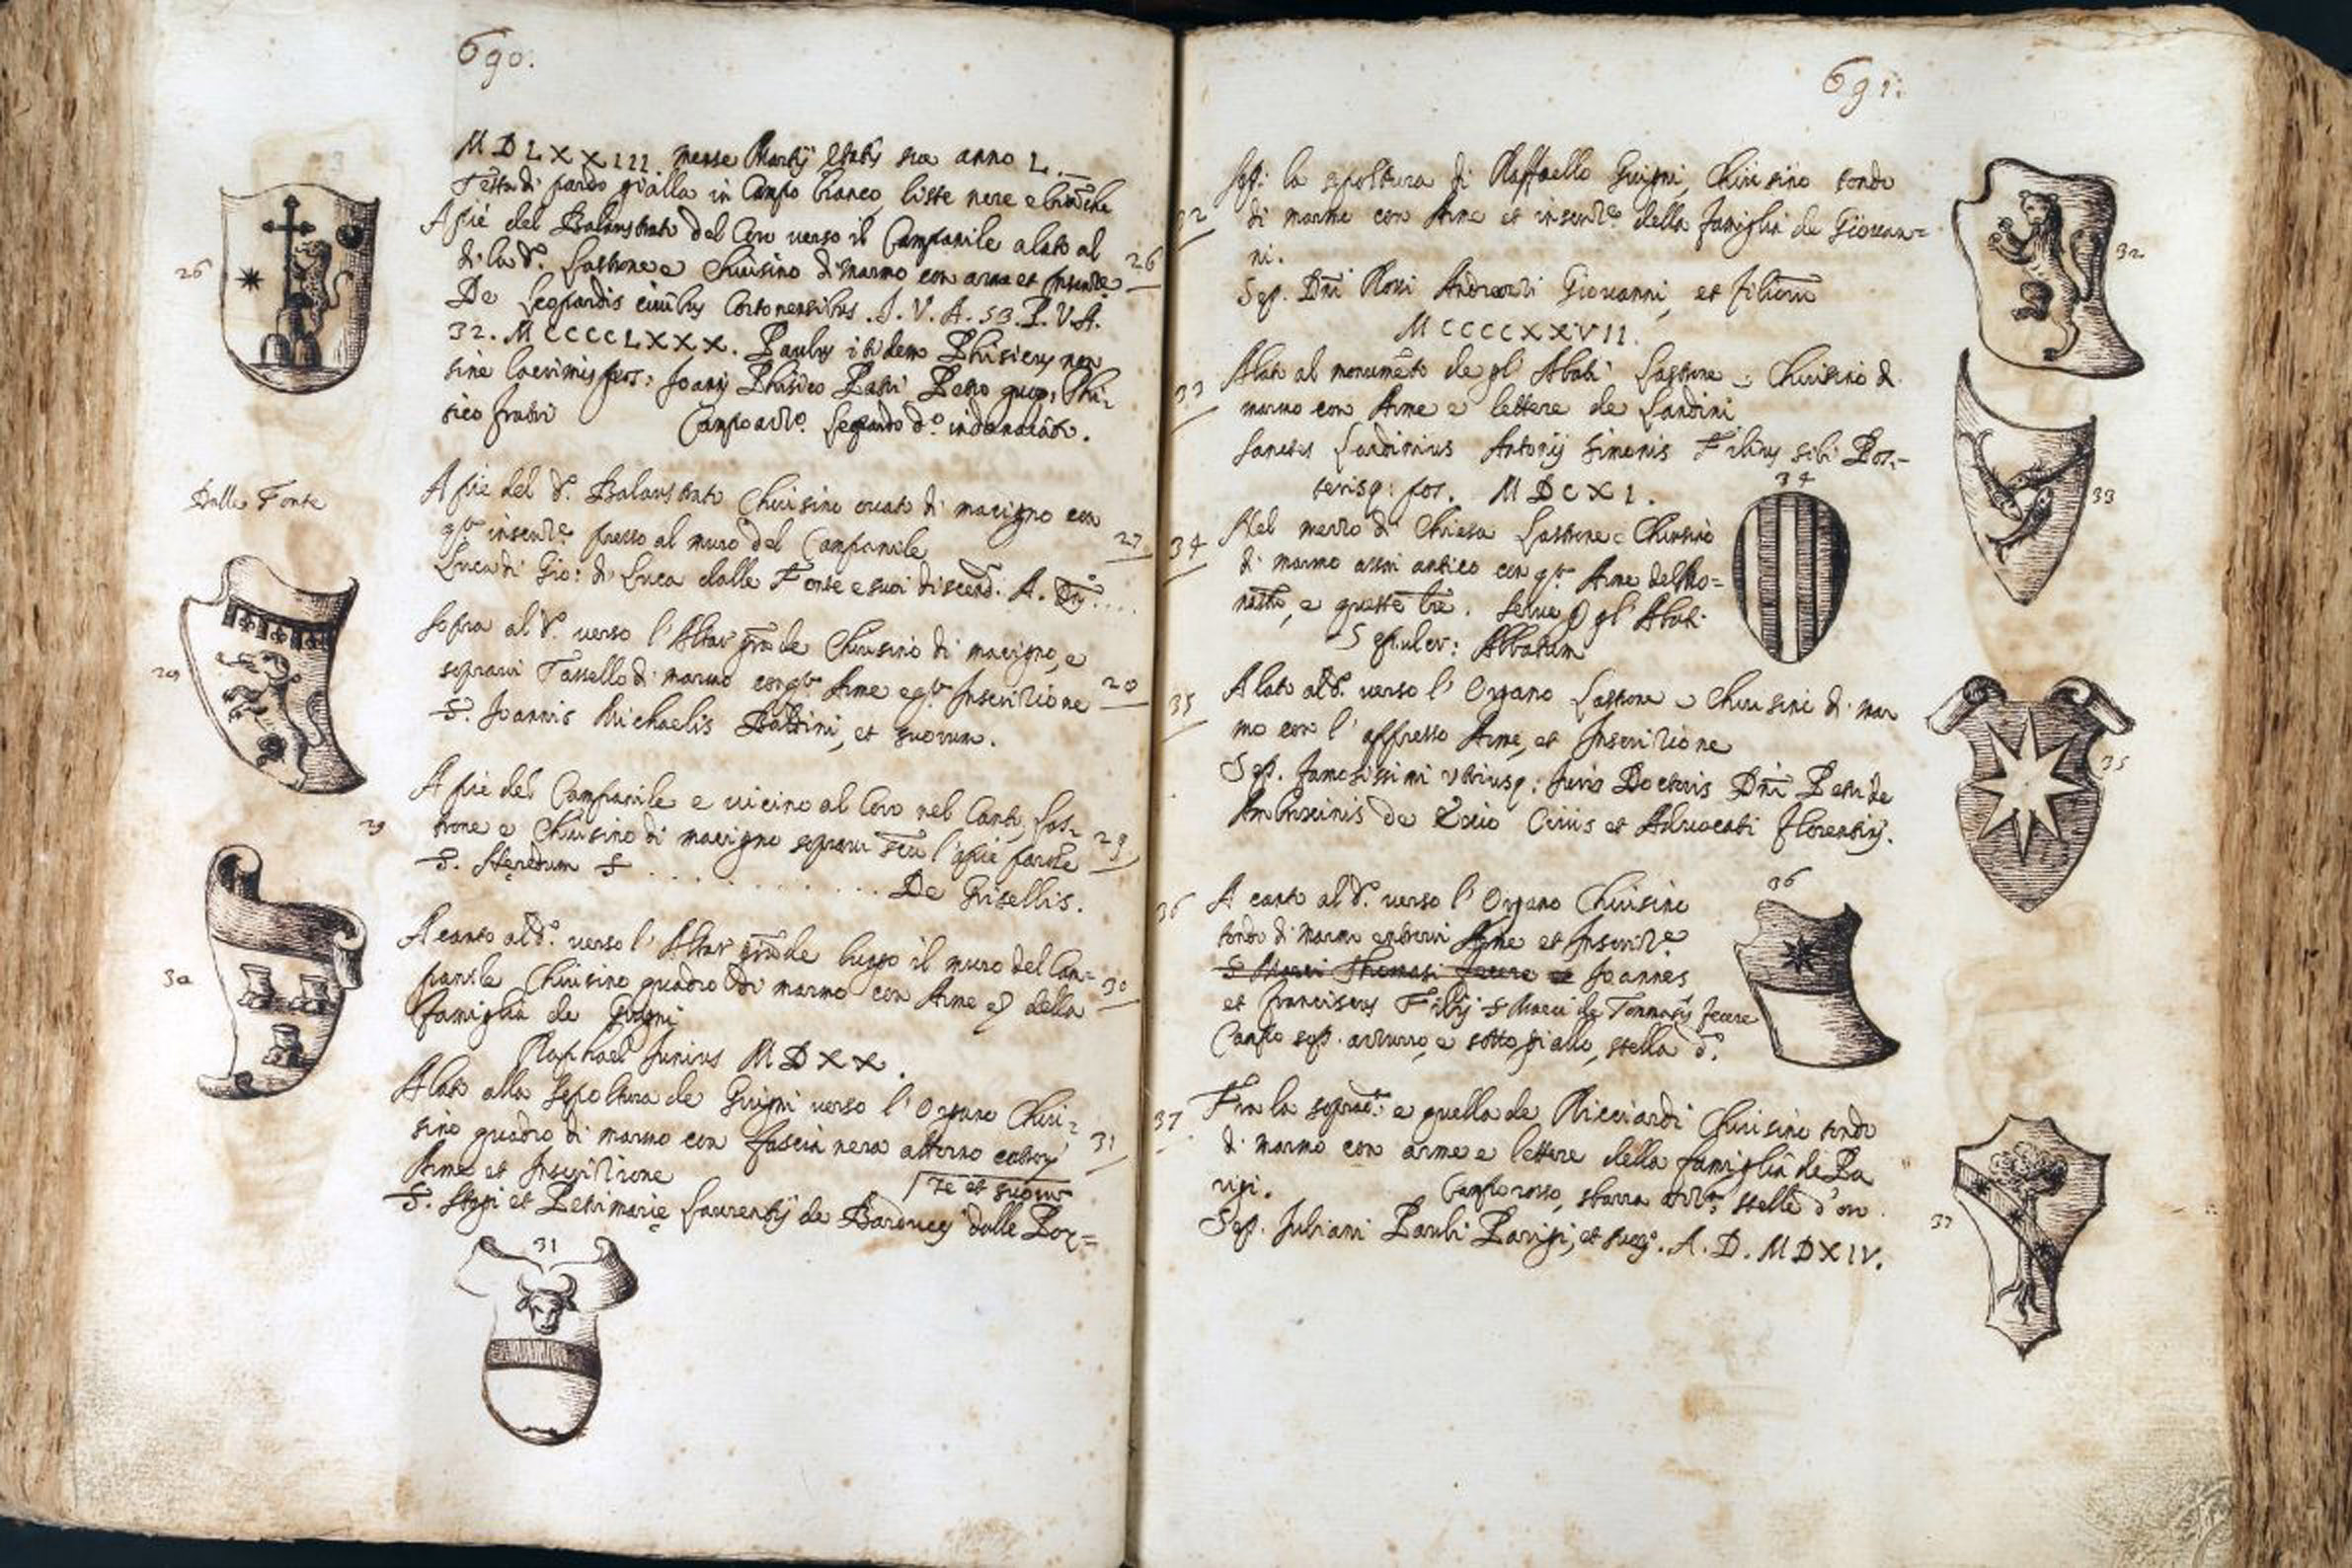 690.
MDLXXIII. mense Martij etatis sue anno L.
Testa di pardo gialla in Campo bianco, liste nere e bianche
A pié del Balaustrato del Coro verso il Campanile alato al
di la d.º Lastrone e Chiusino di marmo con arme et Inscritt.e
26
26
De Leopardis civibus Cortonensibus. I. V. A. 53. P. V. A.
32. MCCCCLXXX. Paulus itidem Phisicus non
sine lacrimis pos: Joanni Phisico Patri Petro quoq; Phi-
sico fratri Campo azzº. Leopardo d'º.
Dalle Fonte
A pie del d.º Balaustrato Chiusino ovato di macigno con
q.ta inscritt.e presso al muro del Campanile
27
Luca di Gio: di Luca dalle Fonte e suoi discend. A. Dni....
Sopra al d.º verso l'Altar grande Chiusino di macigno, e
sopravi Tassello di marmo con q.ta Arme e q.ta Inscrizione
28
S. Joannis Michaelis Baldini, et suorum.
A pie del Campanile e vicino al Coro nel Canto, Las-
trone e Chiusino di macigno sopravi
29
29
S. Heredum S. . . . . . . . . . . De Grisellis.
A canto al d.º verso l'Altar grande lungo il muro del Cam-
panile Chiusino quadro di marmo con Arme e) della
30
30
famiglia de Giugni
Raphael Junius MDXX.
Alato alla Sepoltura de Giugni verso l'Organo Chiu-
sino quadro di marmo con fascia nera attorno
31
Arme et Inscrizione
te et suorum
S. Stasi et Petrimarie Laurentij de Barducci dalle Por-
31
691.
Sop: la sepoltura di Raffaello Giugni, Chiusino tondo
di marmo con Arme et inscritt.e della famiglia de Giovan-
32
32
ni.
Sep. Dni Rossi Andreozzi Giovanni, et filiorum
MCCCCXXVII.
Alato al monumēto de gl'Abati Lastrone e Chiusino di
33
marmo con Arme e lettere de Lardini
33
Sanctes Lardinius Antonij Simonis Filius sibi Pos-
terisq: pos. MDCXI.
34
Nel mezzo di Chiesa Lastrone e Chiusino
34
di marmo assai antico con q.ta Arme del Mo-
nastº, e queste lre. Serve p gl'Abati
Sepulcr: Abbatum
Alato al d.º verso l'Organo Lastrone e Chiusino di mar
35
mo con l'appresso Arme, et Inscrizione
35
Sep. famosissimi utriusq: Juris Doctoris Dni Petri de
Ambrosinis de Civis et Advocati Florentini.
36
36
A canto al d.º verso l'Organo Chiusino
tondo di marmo entrovi Arme et Inscriz.e
S Marci Thomasi fecere Joannes
et Franciscus Filij S Marci de Tommasij fecere
Campo sop. azzurro, e sotto giallo, stella d'º.
37
Fra la soprad.ª e quella de Ricciardi Chiusino tondo
di marmo con arme e lettere della famiglia de Pa
rigi. Campo rosso, sbarra azz.ª stelle d'oro.
37
Sep. Juliani Pauli Parigi, et suor. A. D. MDXIV.